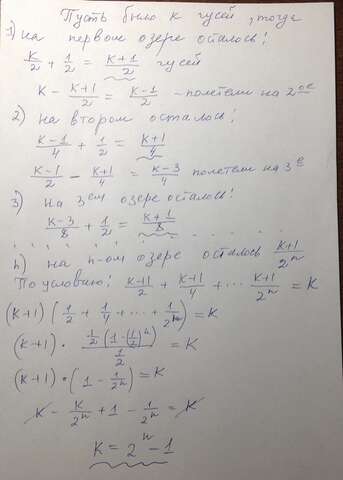 Пусть было к гусей, тогда
1) на первом озере осталось:
к/2 + 1/2 = (к+1)/2 гусей
к - (к+1)/2 = (к-1)/2 - полетели на 2ое
2) на втором осталось:
(к-1)/4 + 1/2 = (к+1)/4
(к-1)/2 - (к+1)/4 = (к-3)/4 полетели на 3е
3) на 3ем озере осталось:
(к-3)/8 + 1/2 = (к+1)/8
. . . . . . . . . . . .
n) на n-ом озере осталось (к+1)/2^n
По условию: (к+1)/2 + (к+1)/4 + ... (к+1)/2^n = к
(к+1) (1/2 + 1/4 + ... + 1/2^n) = к
(к+1) · (1/2 (1-(1/2)^n))/(1/2) = к
(к+1) · (1 - 1/2^n) = к
к - к/2^n + 1 - 1/2^n = к
к = 2^n - 1